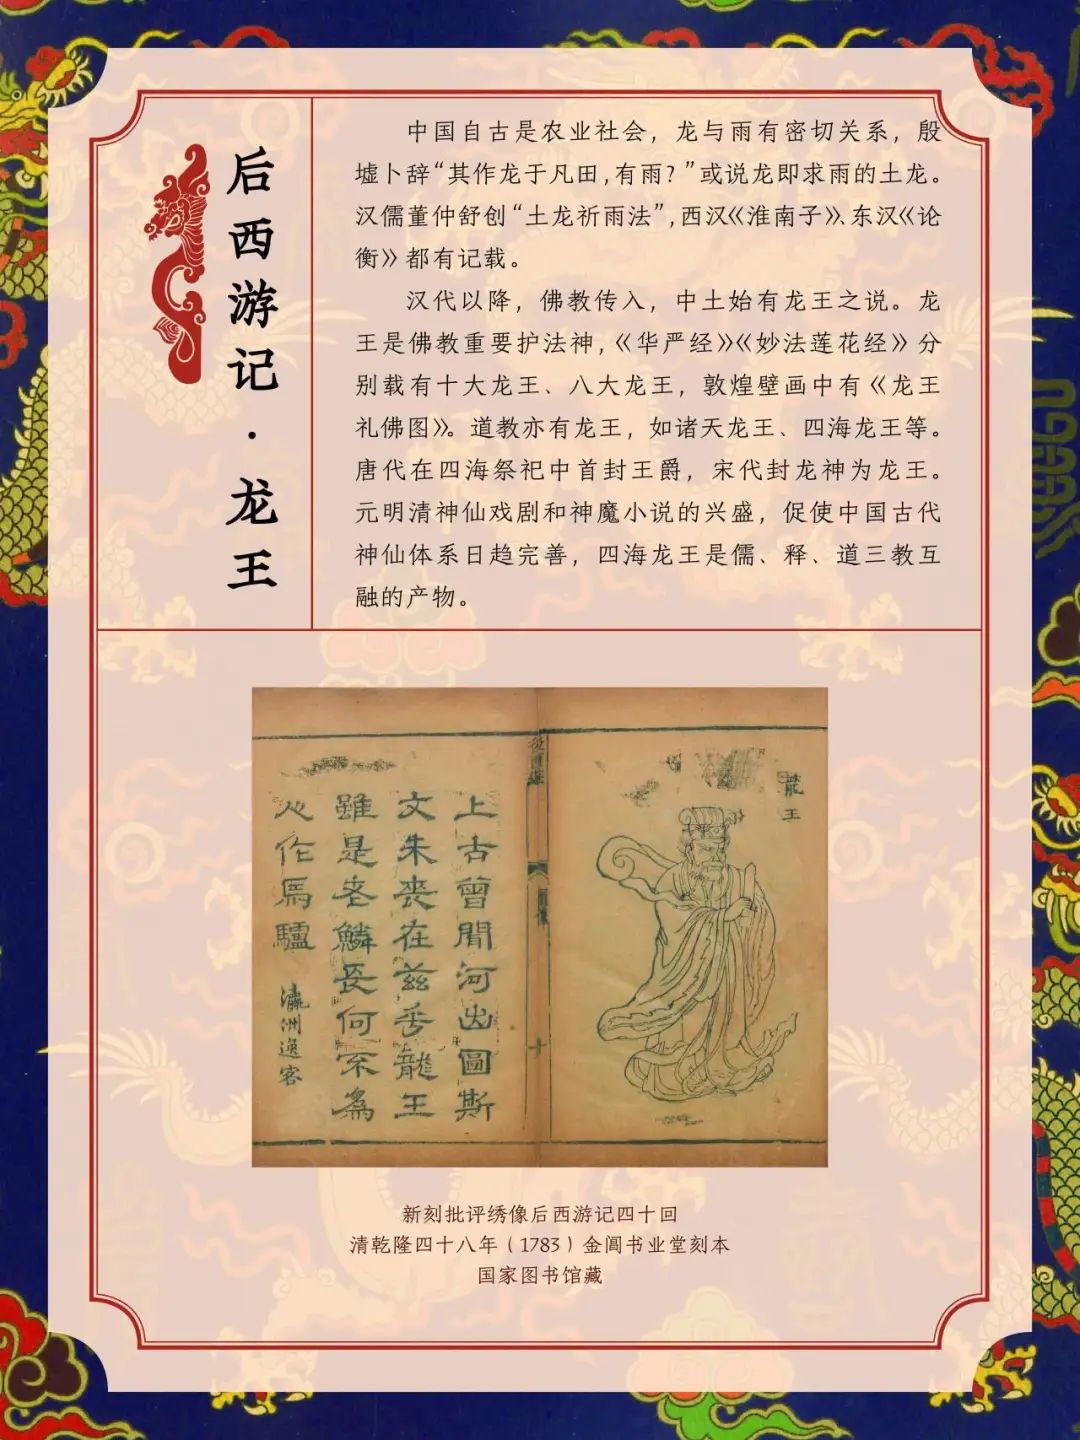 后西游记·龙王
中国自古是农业社会，龙与雨有密切关系，殷
墟卜辞“其作龙于凡田，有雨？”或说龙即求雨的土龙。
汉儒董仲舒创“土龙祈雨法”，西汉《淮南子》、东汉《论
衡》都有记载。
汉代以降，佛教传入，中土始有龙王之说。龙
王是佛教重要护法神，《华严经》《妙法莲花经》分
别载有十大龙王、八大龙王，敦煌壁画中有《龙王
礼佛图》。道教亦有龙王，如诸天龙王、四海龙王等。
唐代在四海祭祀中首封王爵，宋代封龙神为龙王。
元明清神仙戏剧和神魔小说的兴盛，促使中国古代
神仙体系日趋完善，四海龙王是儒、释、道三教互
融的产物。
龍王
上古曾聞河出圖斯
文朱喪在茲乎龍王
雖是老鱗長何不為
人作馬驢
瀛洲逸客
新刻批评绣像后西游记四十回
清乾隆四十八年（1783）金阊书业堂刻本
国家图书馆藏